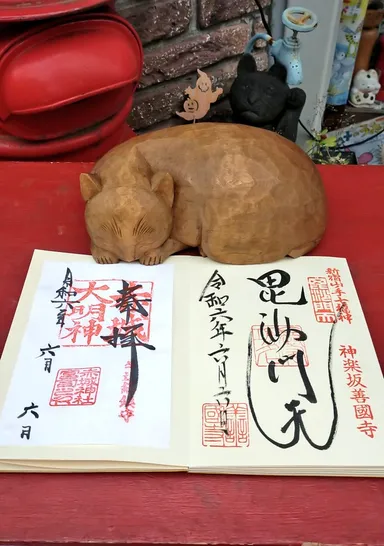 新宿山ノ手七福神
毘沙門天
令和六年六月六日
神楽坂善國寺
奉拝
大明神
令和六年
六月
六日